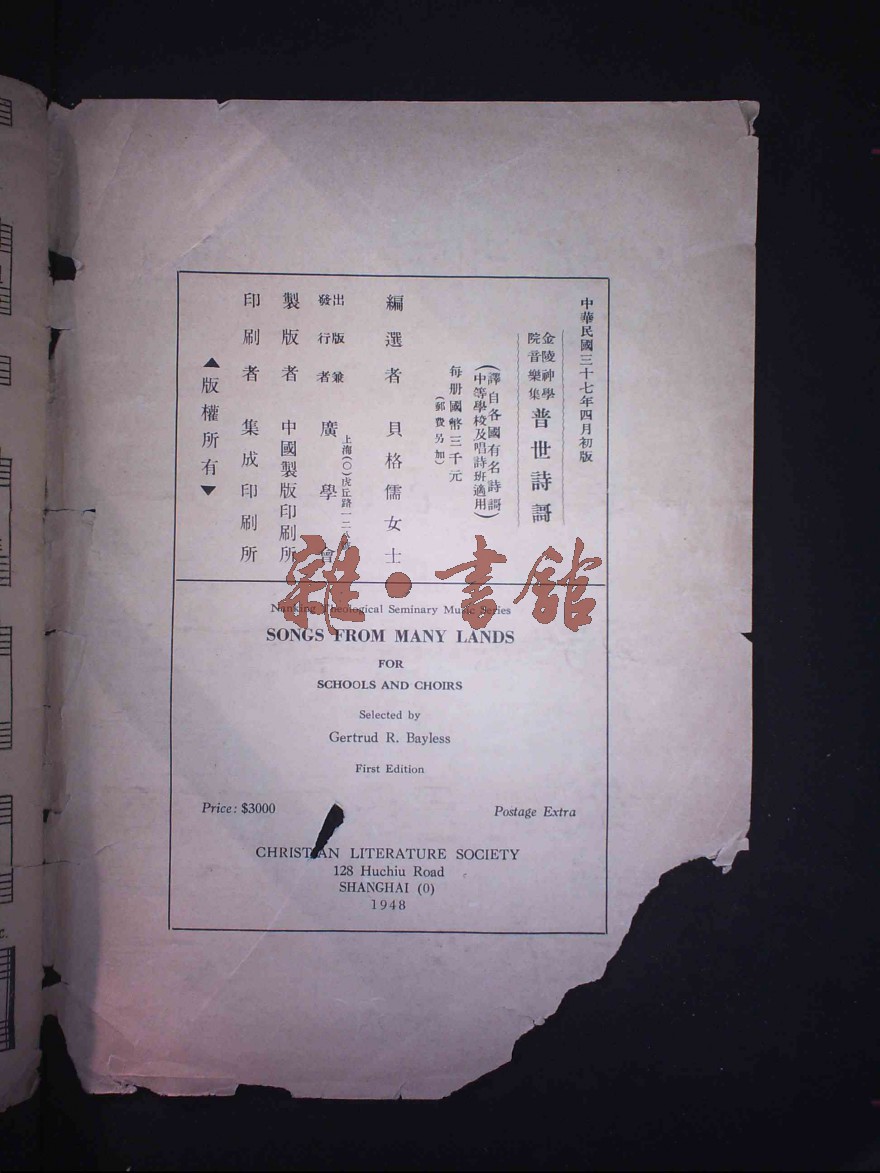 中華民國三十七年四月初版
金陵神學
院音樂集
普世詩謌
(譯自各國有名詩謌
中等學校及唱詩班適用)
每册國幣三千元
(郵費另加)
編選者 貝格儒女士
出版兼
發行者 廣學會
上海(〇)虎丘路一二八號
製版者 中國製版印刷所
印刷者 集成印刷所
▲版權所有▼
雜·書館
Nanking Theological Seminary Music Series
SONGS FROM MANY LANDS
FOR
SCHOOLS AND CHOIRS
Selected by
Gertrud R. Bayless
First Edition
Price: $3000 Postage Extra
CHRISTIAN LITERATURE SOCIETY
128 Huchiu Road
SHANGHAI (0)
1948